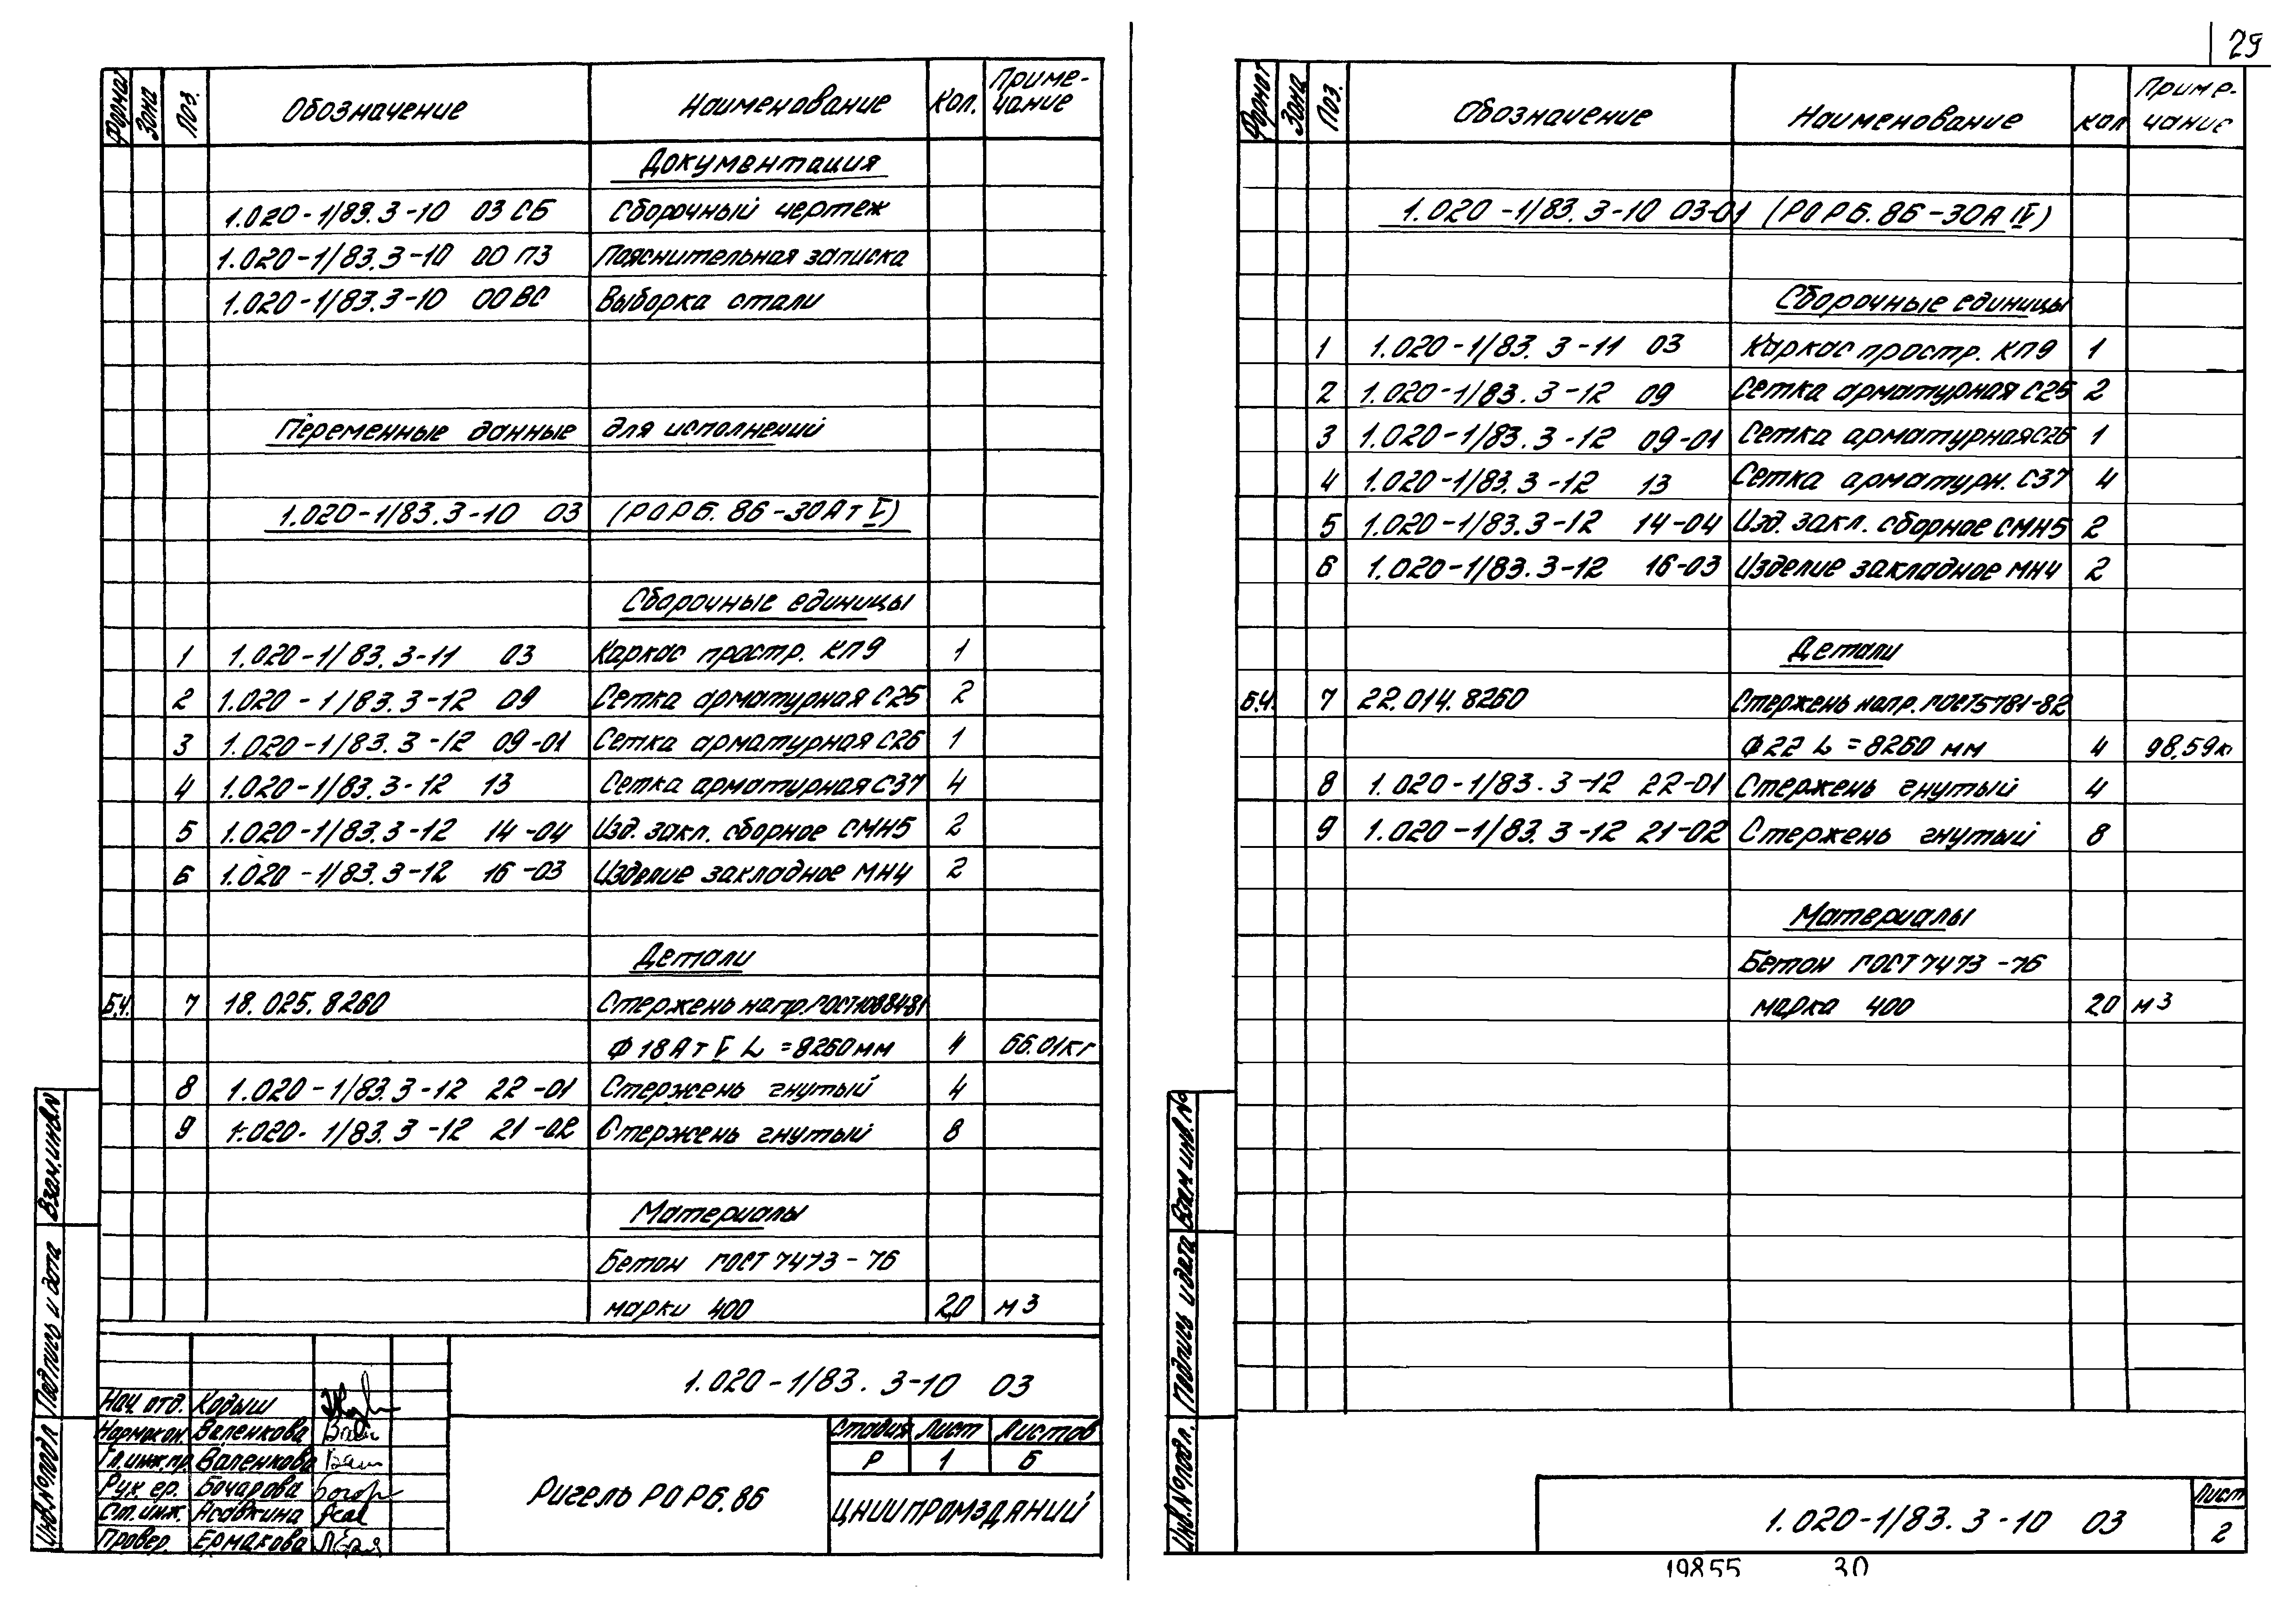 29
Формат Зона Поз. Обозначение Наименование Кол. Приме-
чание
Документация
1.020-1/83.3-10 03 СБ Сборочный чертеж
1.020-1/83.3-10 00 ПЗ Пояснительная записка
1.020-1/83.3-10 00 ВС Выборка стали
Переменные данные для исполнений
1.020-1/83.3-10 03 (РОР6.86-30АтV)
Сборочные единицы
1 1.020-1/83.3-11 03 Каркас простр. КП9 1
2 1.020-1/83.3-12 09 Сетка арматурная С25 2
3 1.020-1/83.3-12 09-01 Сетка арматурная С26 1
4 1.020-1/83.3-12 13 Сетка арматурная С37 4
5 1.020-1/83.3-12 14-04 Изд. закл. сборное СМН5 2
6 1.020-1/83.3-12 16-03 Изделие закладное МН4 2
Детали
Б.Ч. 7 18.025.8260 Стержень напр. ГОСТ10884-81
Ф18АтV L=8260мм 4 66.01кг
8 1.020-1/83.3-12 22-01 Стержень гнутый 4
9 1.020-1/83.3-12 21-02 Стержень гнутый 8
Материалы
Бетон ГОСТ 7473-76
марки 400 2,0 м3
Взам.инв.N
Подпись и дата
Инв.№подл
1.020-1/83.3-10 03
Нач. отд. Кодыш
Нормокон. Валенкова
Гл.инж.пр. Валенкова
Рук. гр. Бочарова
Ст. инж. Асавкина
Провер. Ермакова
Ригель РОР6.86
Стадия Лист Листов
Р 1 6
ЦНИИПРОМЗДАНИЙ
Формат Зона Поз. Обозначение Наименование кол Приме-
чание
1.020-1/83.3-10 03-01 (РОР6.86-30АIV)
Сборочные единицы
1 1.020-1/83.3-11 03 Каркас простр. КП9 1
2 1.020-1/83.3-12 09 Сетка арматурная С25 2
3 1.020-1/83.3-12 09-01 Сетка арматурная С26 1
4 1.020-1/83.3-12 13 Сетка арматурн. С37 4
5 1.020-1/83.3-12 14-04 Изд. закл. сборное СМН5 2
6 1.020-1/83.3-12 16-03 Изделие закладное МН4 2
Детали
Б.Ч. 7 22.014.8260 Стержень напр. ГОСТ5781-82
Ф22 L=8260 мм 4 98,59кг
8 1.020-1/83.3-12 22-01 Стержень гнутый 4
9 1.020-1/83.3-12 21-02 Стержень гнутый 8
Материалы
Бетон ГОСТ 7473-76
марка 400 2,0 м3
Взам инв.№
Подпись и дата
Инв.№подл.
1.020-1/83.3-10 03
Лист
2
19855 30